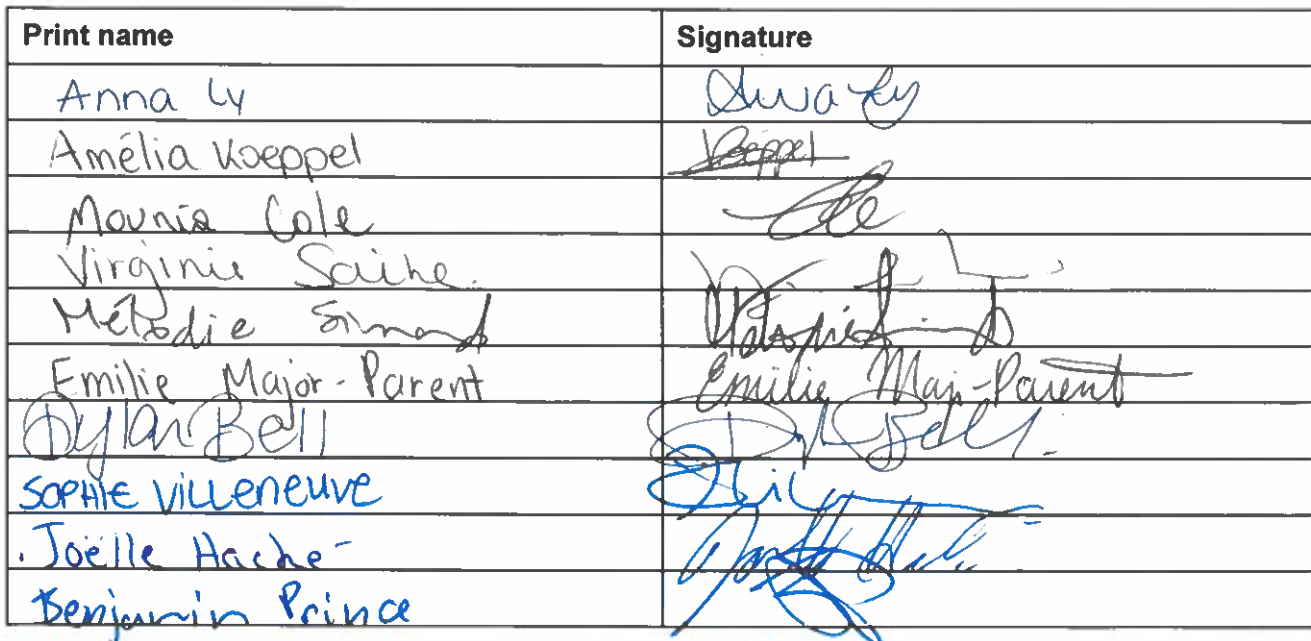 Print name Signature
Anna Ly
Amélia Koeppel Koeppel
Mounia Cole
Virginie
Mélodie Simard
Emilie Major-Parent Emilie Maj-Parent
Dylan Bell Bell
SOPHIE VILLENEUVE
Joëlle Haché
Benjamin Prince